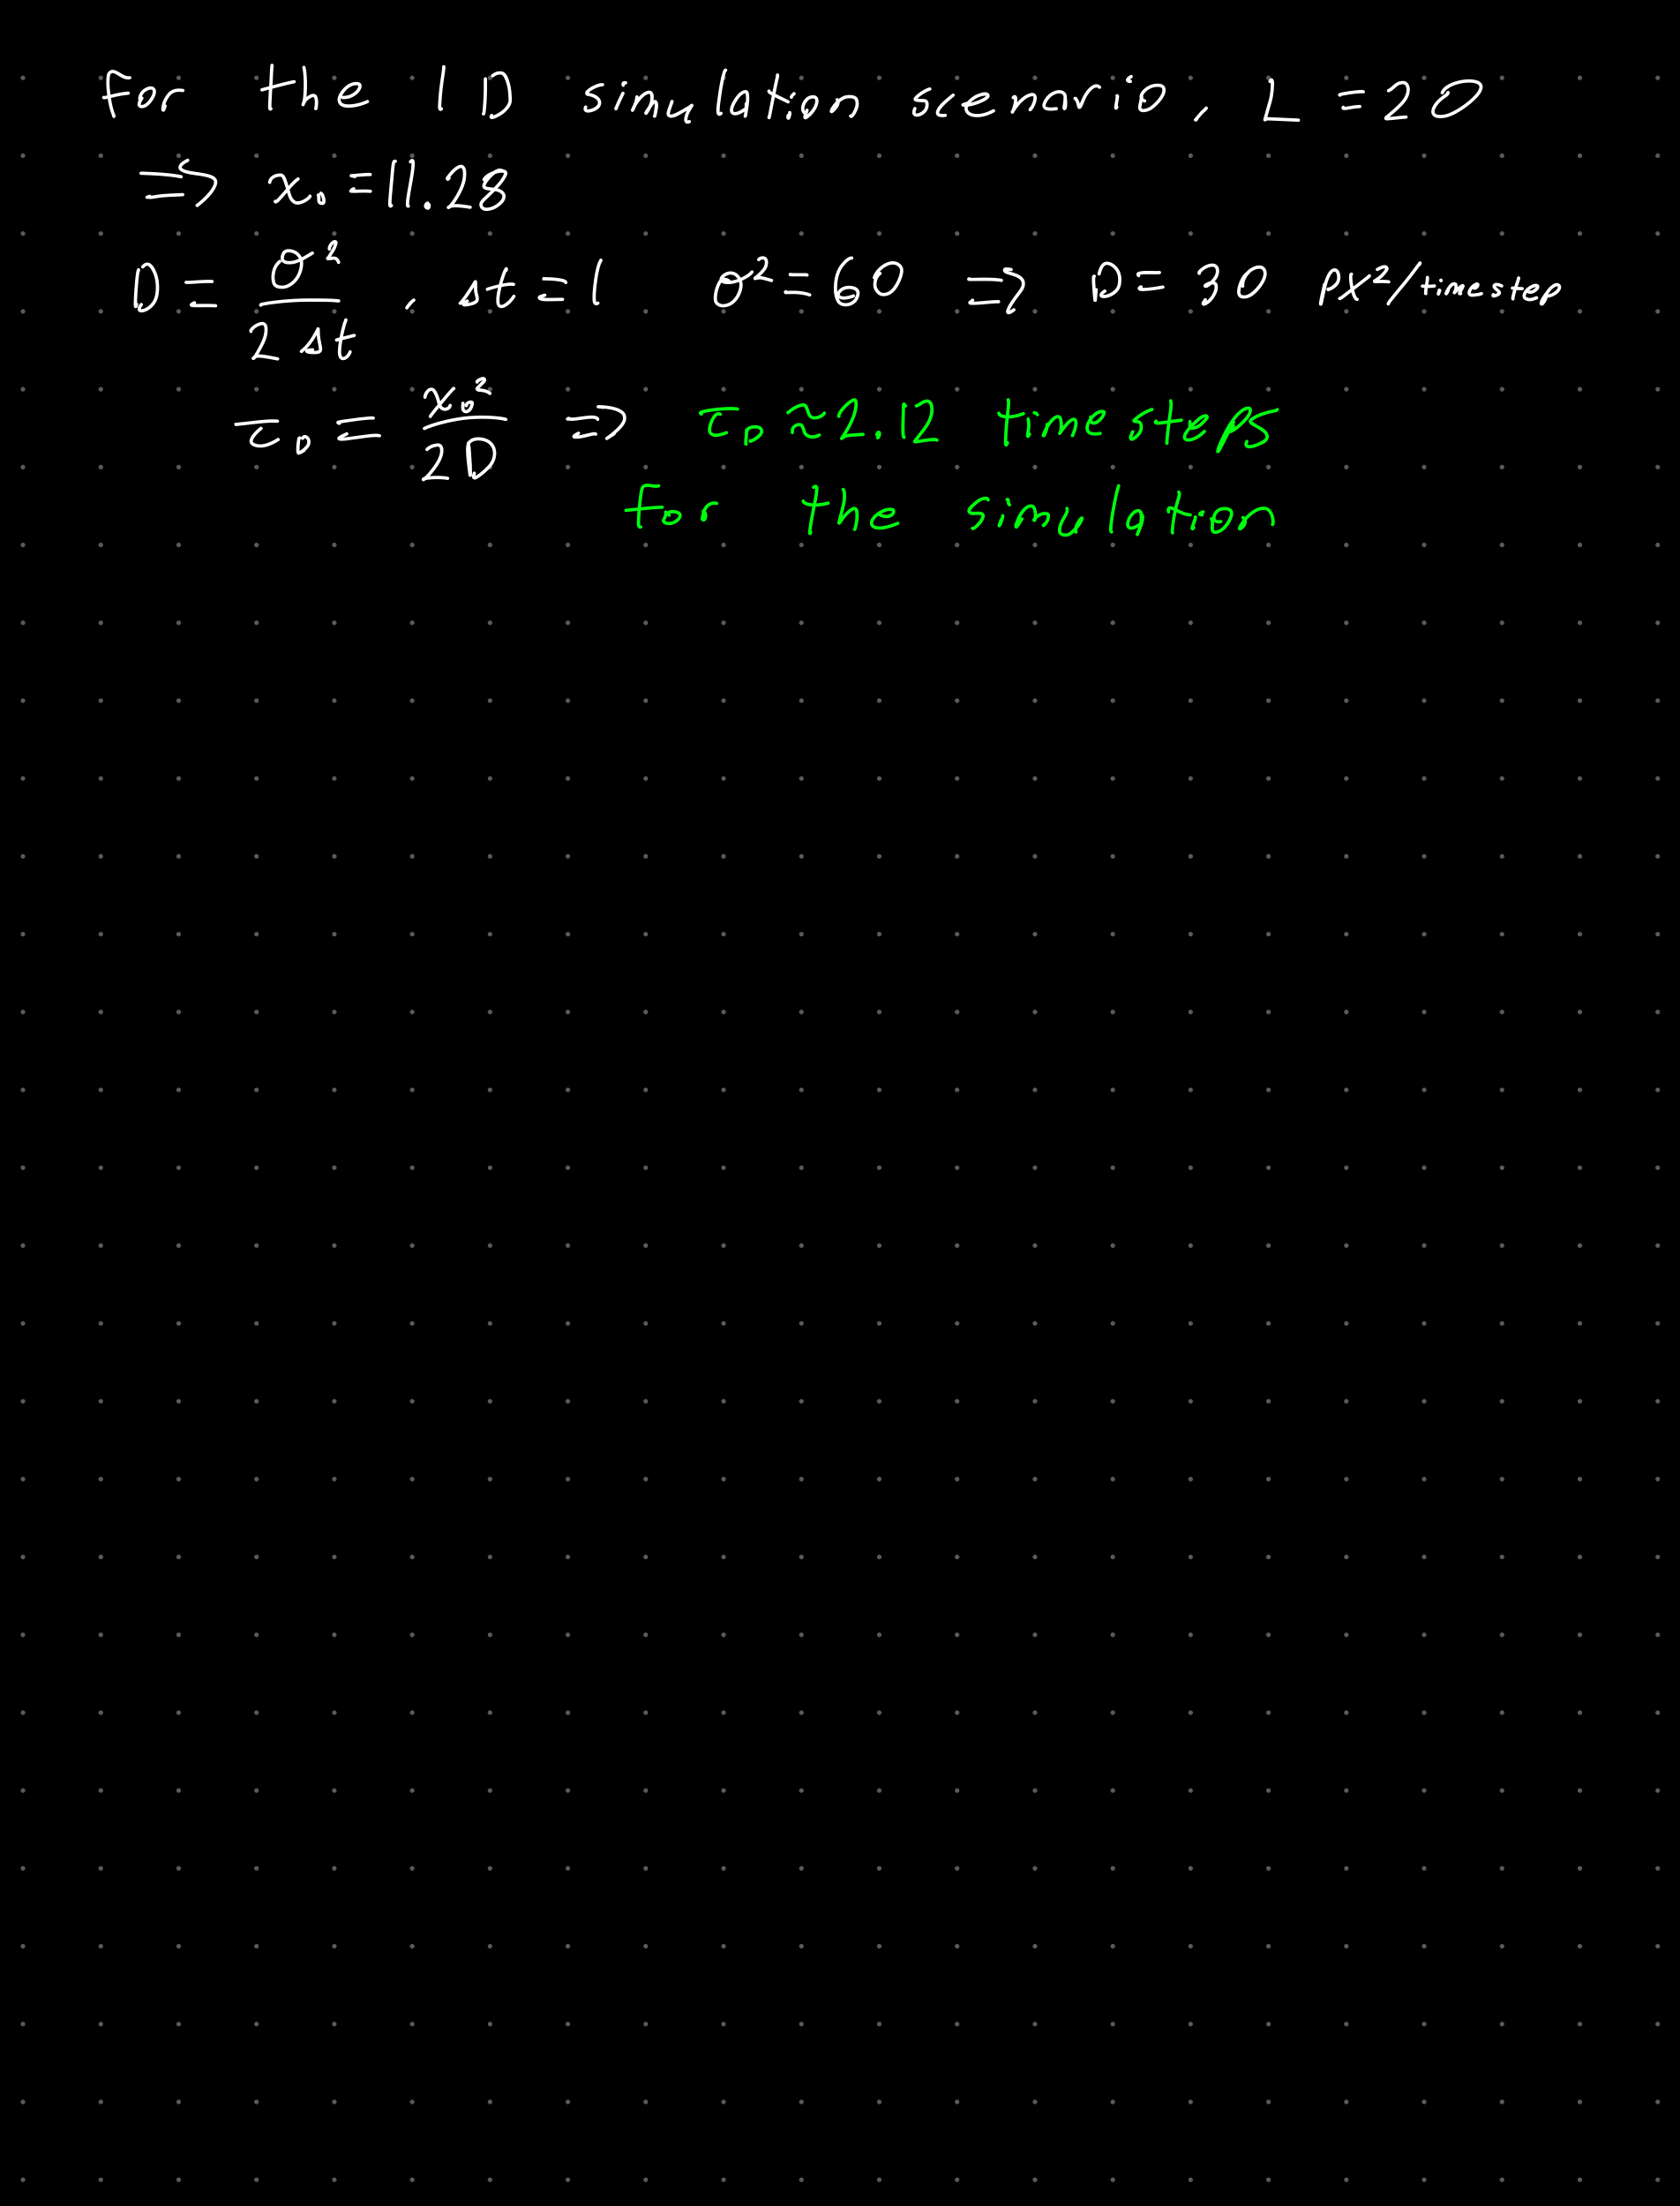 For the 1D simulation scenario, L = 20
⇒ x₀ = 11.28
D = σ²/(2 Δt), Δt = 1 σ² = 60 ⇒ D = 30 px²/timestep
τ_D = x₀²/(2D) ⇒ τ_D ≈ 2.12 timesteps
for the simulation